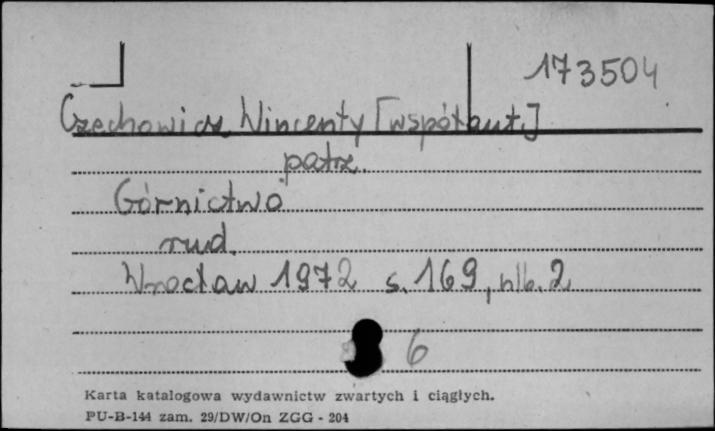 173504
Czechowicz Wincenty [współaut.]
patrz.
Górnictwo
rud.
Wrocław 1972 s. 169, nlb. 2
6
Karta katalogowa wydawnictw zwartych i ciągłych.
PU-B-144 zam. 29/DW/On ZGG - 204